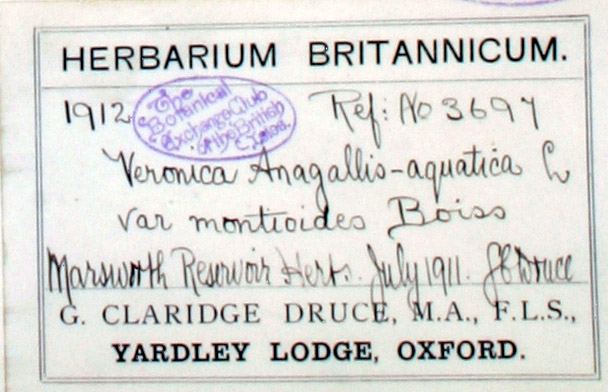 HERBARIUM BRITANNICUM.
1912 Ref: No 3697
The
Botanical
Exchange Club
of the British
Isles.
Veronica Anagallis-aquatica L
var montioides Boiss
Marsworth Reservoir Herts. July 1911. GC Druce
G. CLARIDGE DRUCE, M.A., F.L.S.,
YARDLEY LODGE, OXFORD.